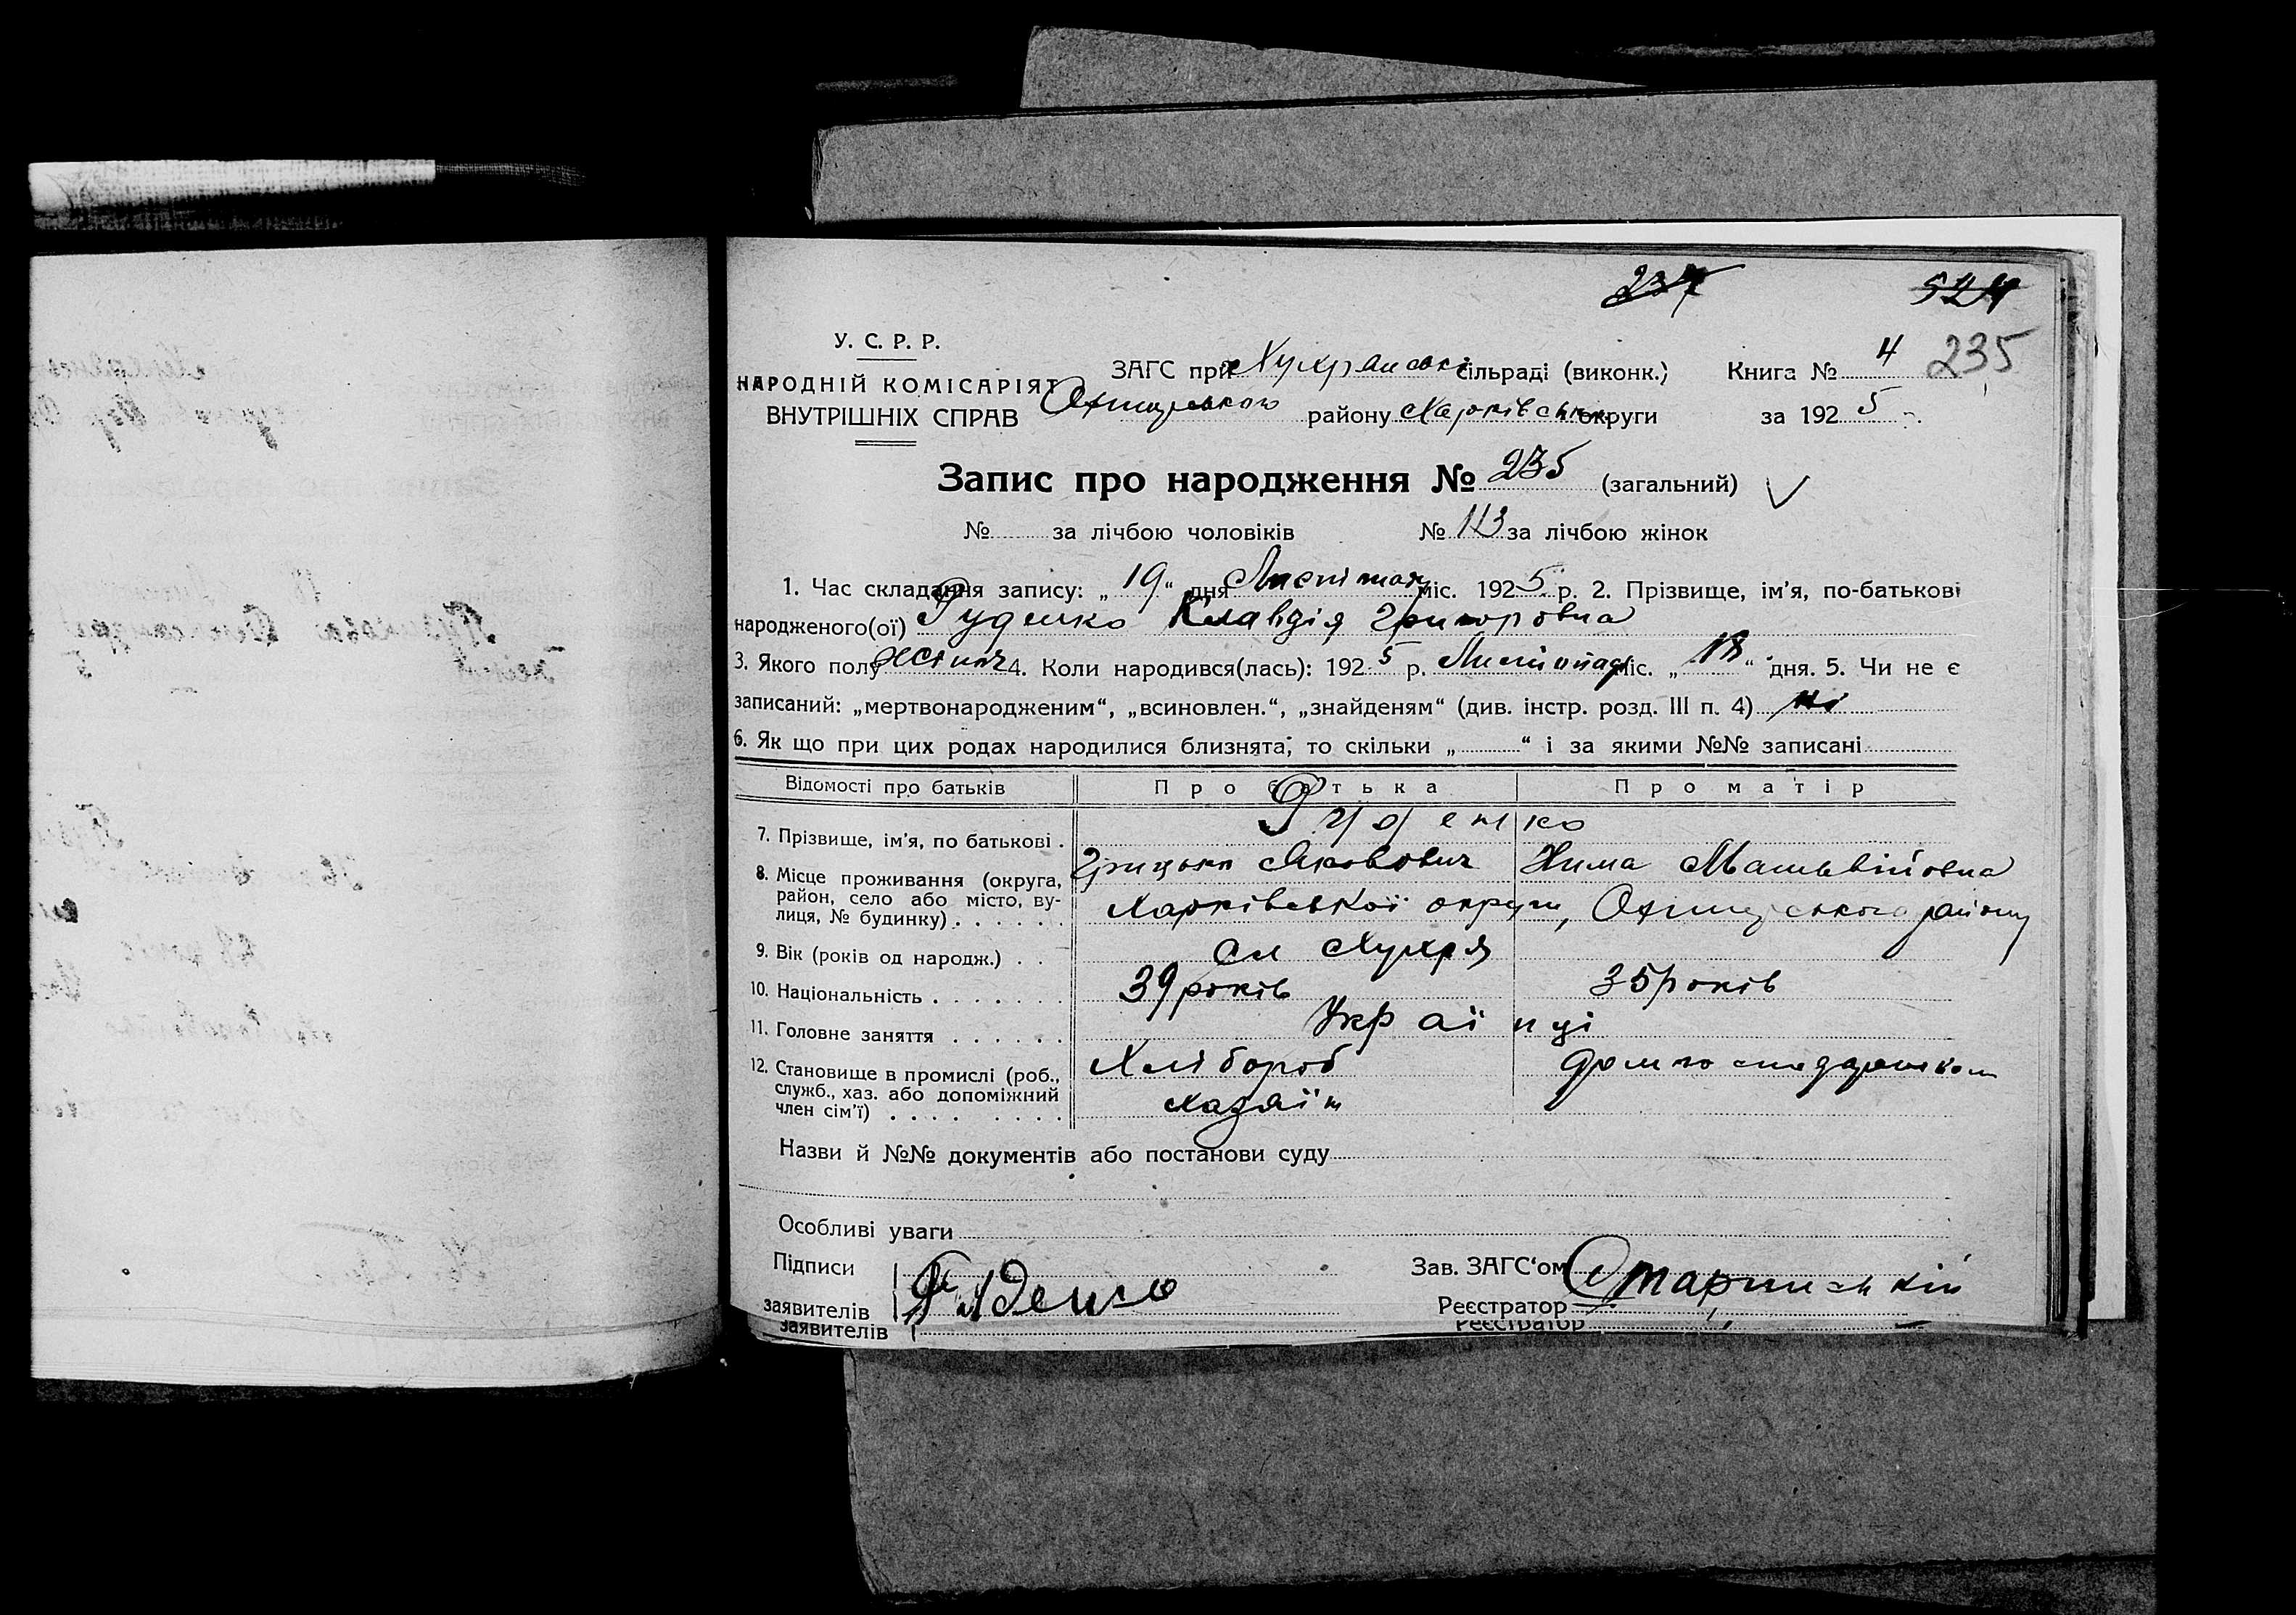 237 524
У. С. Р. Р.
НАРОДНІЙ КОМІСАРІЯТ
ВНУТРІШНІХ СПРАВ
ЗАГС при Хухрянські сільраді (виконк.) Книга № 4 235
Охтирського району Харківськ округи за 1925 р.
Запис про народження № 235 (загальний)
№ за лічбою чоловіків № 113 за лічбою жінок
1. Час складання запису: „19“ дня Листопад міс. 1925 р. 2. Прізвище, ім'я, по-батькові
народженого(ої) Руденко Клавдія Григоровна
3. Якого полу жіноч 4. Коли народився(лась): 1925 р. Листопад міс. „18“ дня. 5. Чи не є
записаний: „мертвонародженим“, „всиновлен.“, „знайденям“ (див. інстр. розд. III п. 4) ні
6. Як що при цих родах народилися близнята, то скільки „ “ і за якими №№ записані
Відомості про батьків Про батька Про матір
7. Прізвище, ім'я, по батькові . Руденко
Грицько Якович Хима Матьвійовна
8. Місце проживання (округа, район, село або місто, ву-
лиця, № будинку) . . . . . . Харківської округи, Охтирського району
сл Хухря
9. Вік (років од народж.) . . 39 років 35 років
10. Національність . . . . . . . Українці
11. Головне заняття . . . . . . Хлібороб
12. Становище в промислі (роб.,
служб., хаз. або допоміжний
член сім'ї) . . . . . . . . Хазяїн
Назви й №№ документів або постанови суду
Особливі уваги
Підписи
заявителів Руденко
Зав. ЗАГС'ом
Реєстратор
заявителів
Реєстратор